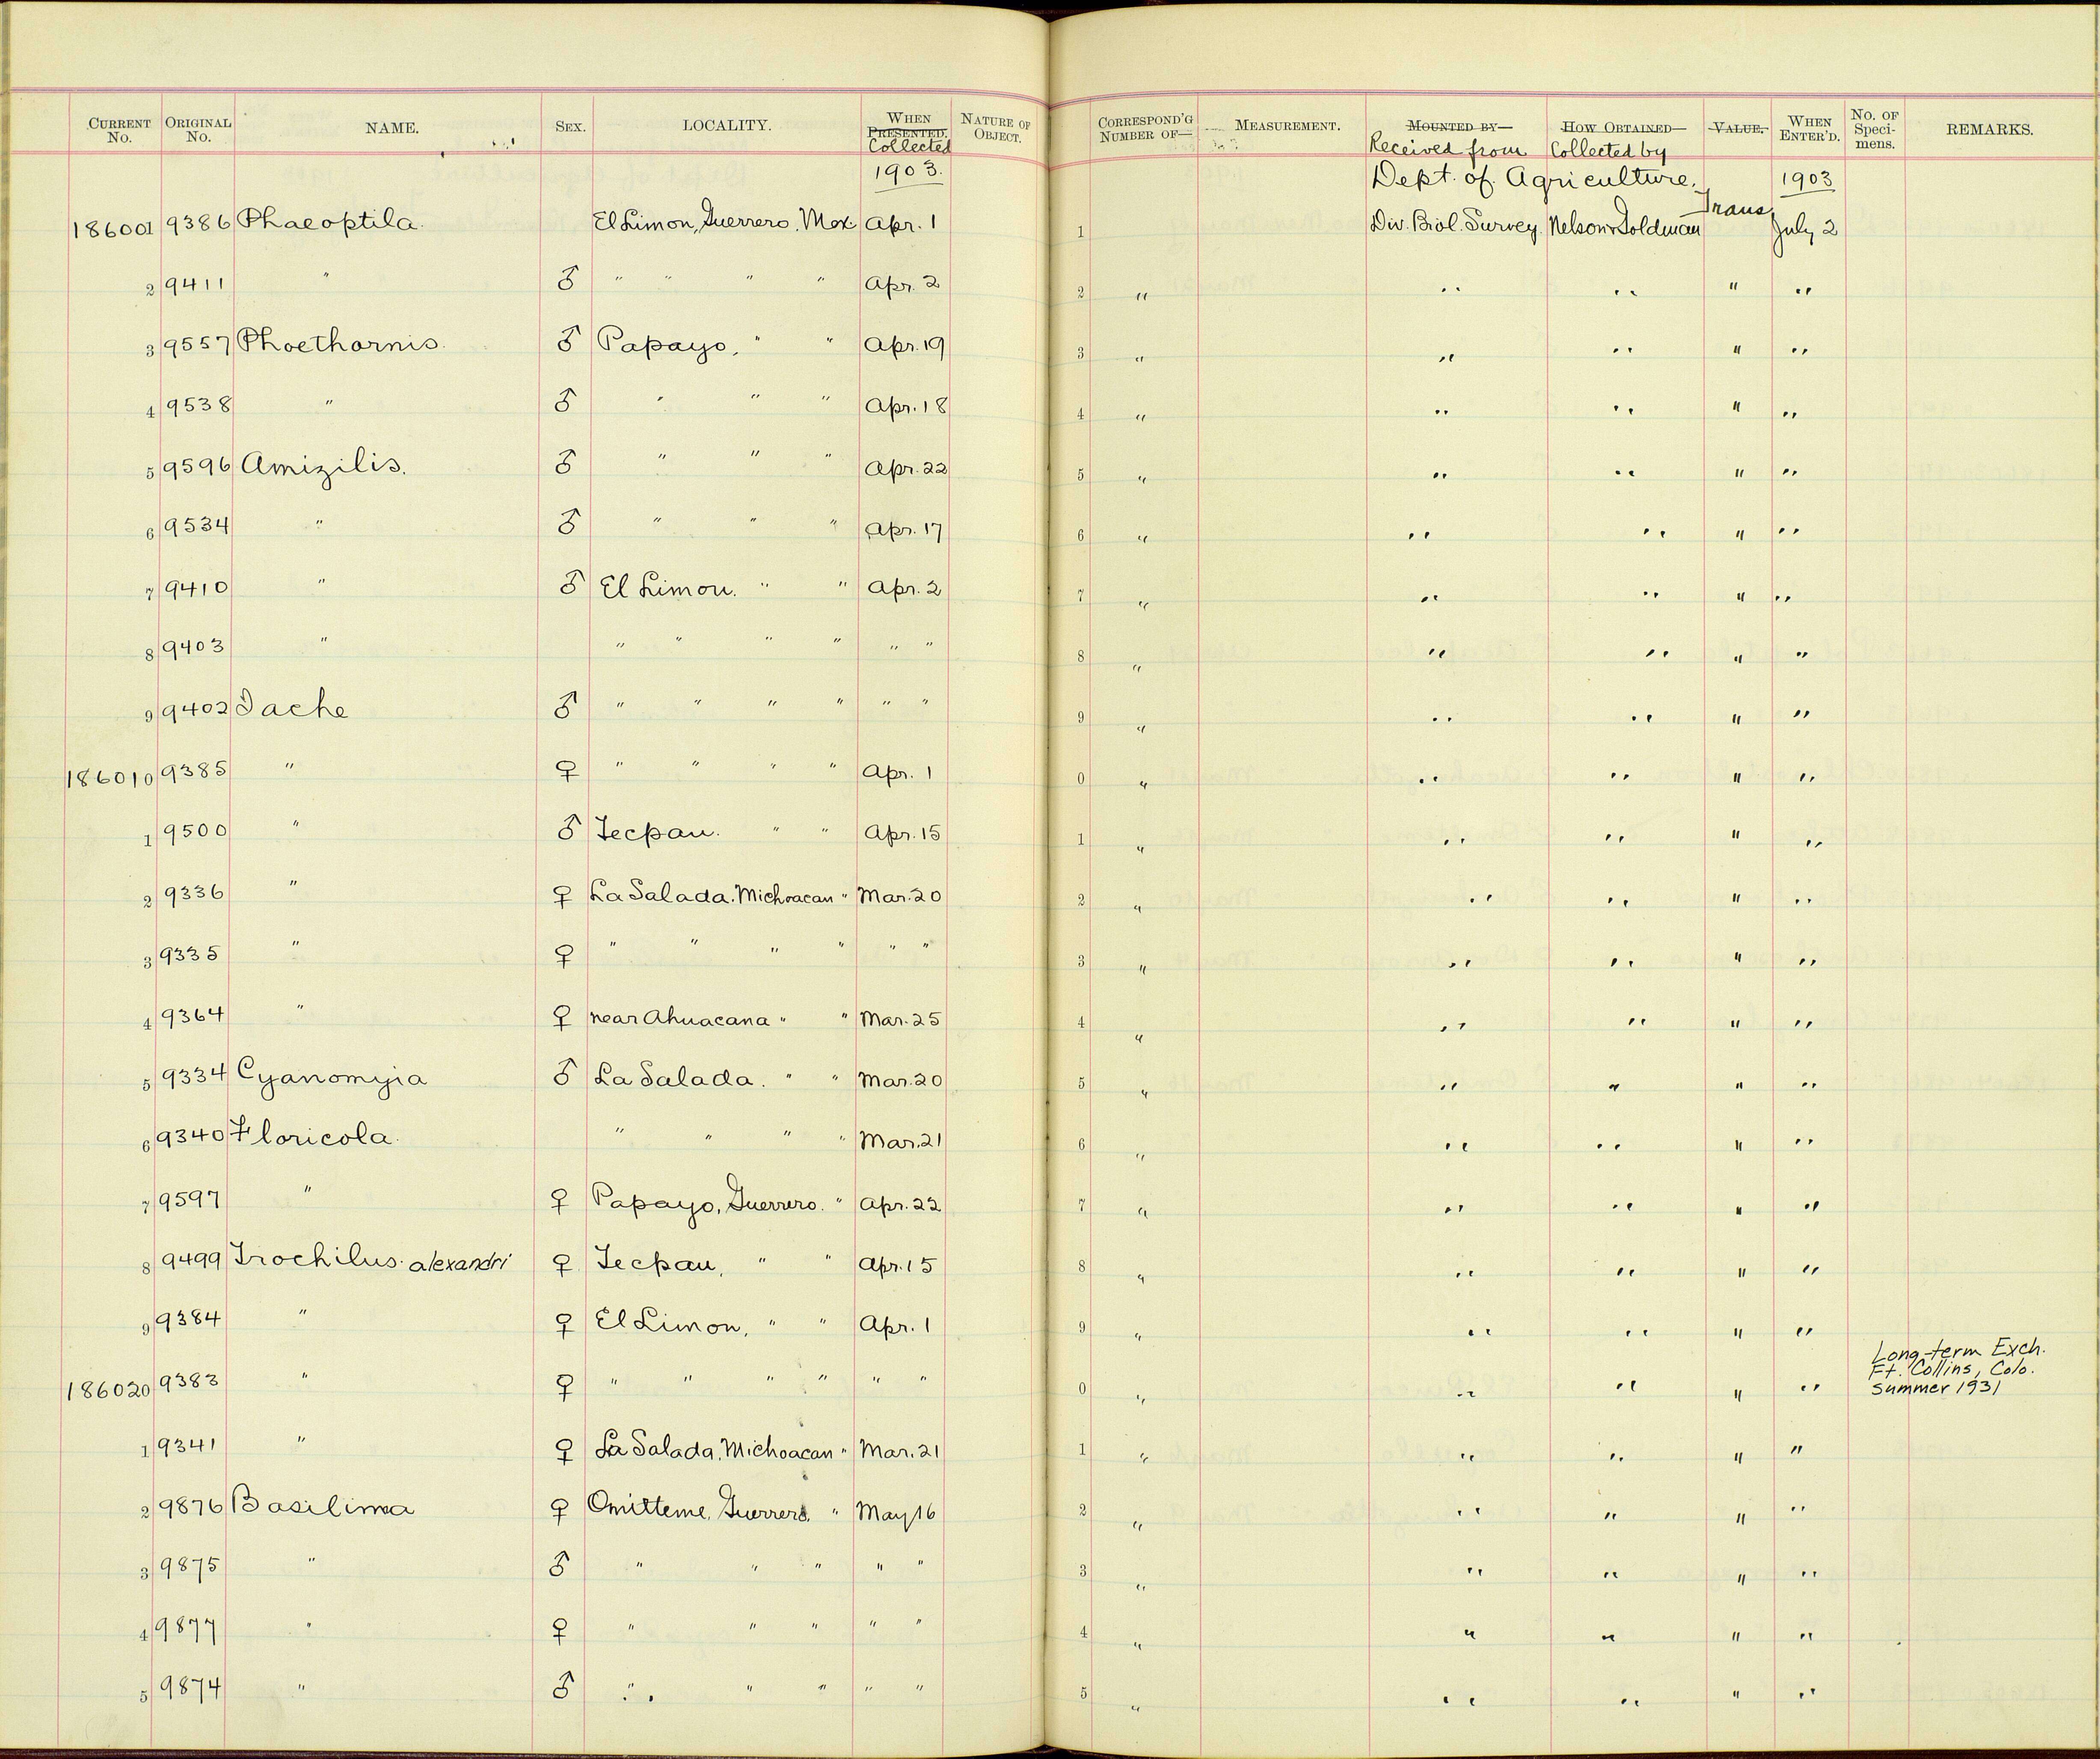 CURRENT No. ORIGINAL No. NAME. SEX. LOCALITY. WHEN PRESENTED. Collected NATURE OF OBJECT. CORRESPOND'G NUMBER OF— MEASUREMENT. MOUNTED BY— Received from HOW OBTAINED— Collected by VALUE. WHEN ENTER'D. No. OF Specimens. REMARKS.
1903. Dept. of Agriculture. 1903
186001 9386 Phaeoptila. El Limon, Guerrero, Mex. Apr. 1 1 Div. Biol. Survey. Nelson & Goldman Trans. July 2
2 9411 " ♂ " " " " Apr. 2 2 " " " " "
3 9557 Phoethornis. ♂ Papayo, " " Apr. 19 3 " " " " "
4 9538 " ♂ " " " Apr. 18 4 " " " " "
5 9596 Amizilis. ♂ " " " Apr. 22 5 " " " " "
6 9534 " ♂ " " " Apr. 17 6 " " " " "
7 9410 " ♂ El Limon. " " Apr. 2 7 " " " " "
8 9403 " " " " " " " 8 " " " " "
9 9402 Iache ♂ " " " " " " 9 " " " " "
186010 9385 " ♀ " " " " Apr. 1 0 " " " " "
1 9500 " ♂ Tecpan. " " Apr. 15 1 " " " " "
2 9336 " ♀ La Salada. Michoacan " Mar. 20 2 " " " " "
3 9335 " ♀ " " " " " " 3 " " " " "
4 9364 " ♀ near Ahuacana " " Mar. 25 4 " " " " "
5 9334 Cyanomyia ♂ La Salada. " " Mar. 20 5 " " " " "
6 9340 Floricola. " " " " Mar. 21 6 " " " " "
7 9597 " ♀ Papayo, Guerrero. " Apr. 22 7 " " " " "
8 9499 Trochilus. alexandri ♀ Tecpan, " " Apr. 15 8 " " " " "
9 9384 " ♀ El Limon, " " Apr. 1 9 " " " " "
186020 9383 " ♀ " " " " " " 0 " " " " " Long-term Exch.
Ft. Collins, Colo.
Summer 1931
1 9341 " ♀ La Salada, Michoacan " Mar. 21 1 " " " " "
2 9876 Basilinna ♀ Omitteme, Guerrero. " May 16 2 " " " " "
3 9875 " ♂ " " " " " 3 " " " " "
4 9877 " ♀ " " " " " 4 " " " " "
5 9874 " ♂ " " " " " 5 " " " " "